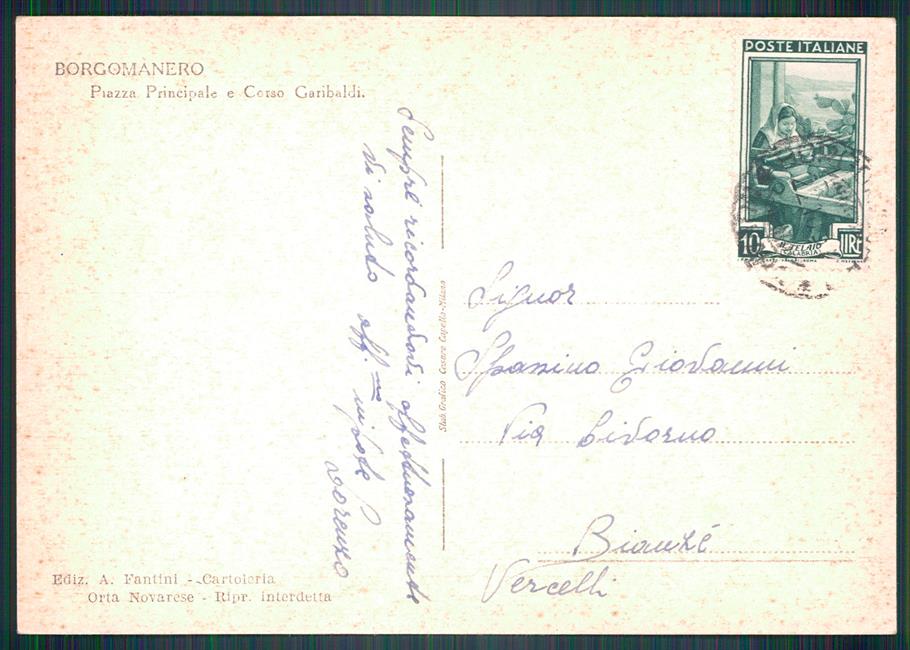 BORGOMANERO
Piazza Principale e Corso Garibaldi.
POSTE ITALIANE
10 LIRE
IL TELAIO
(CALABRIA)
Sempre ricordandovi affettuosamente
vi saluto aff.mo nipote
Lorenzo
Stab. Grafico Cesare Capello-Milano
Signor
Giovanni
Via Livorno
Bianzé
Vercelli
Ediz. A. Fantini - Cartoleria
Orta Novarese - Ripr. interdetta